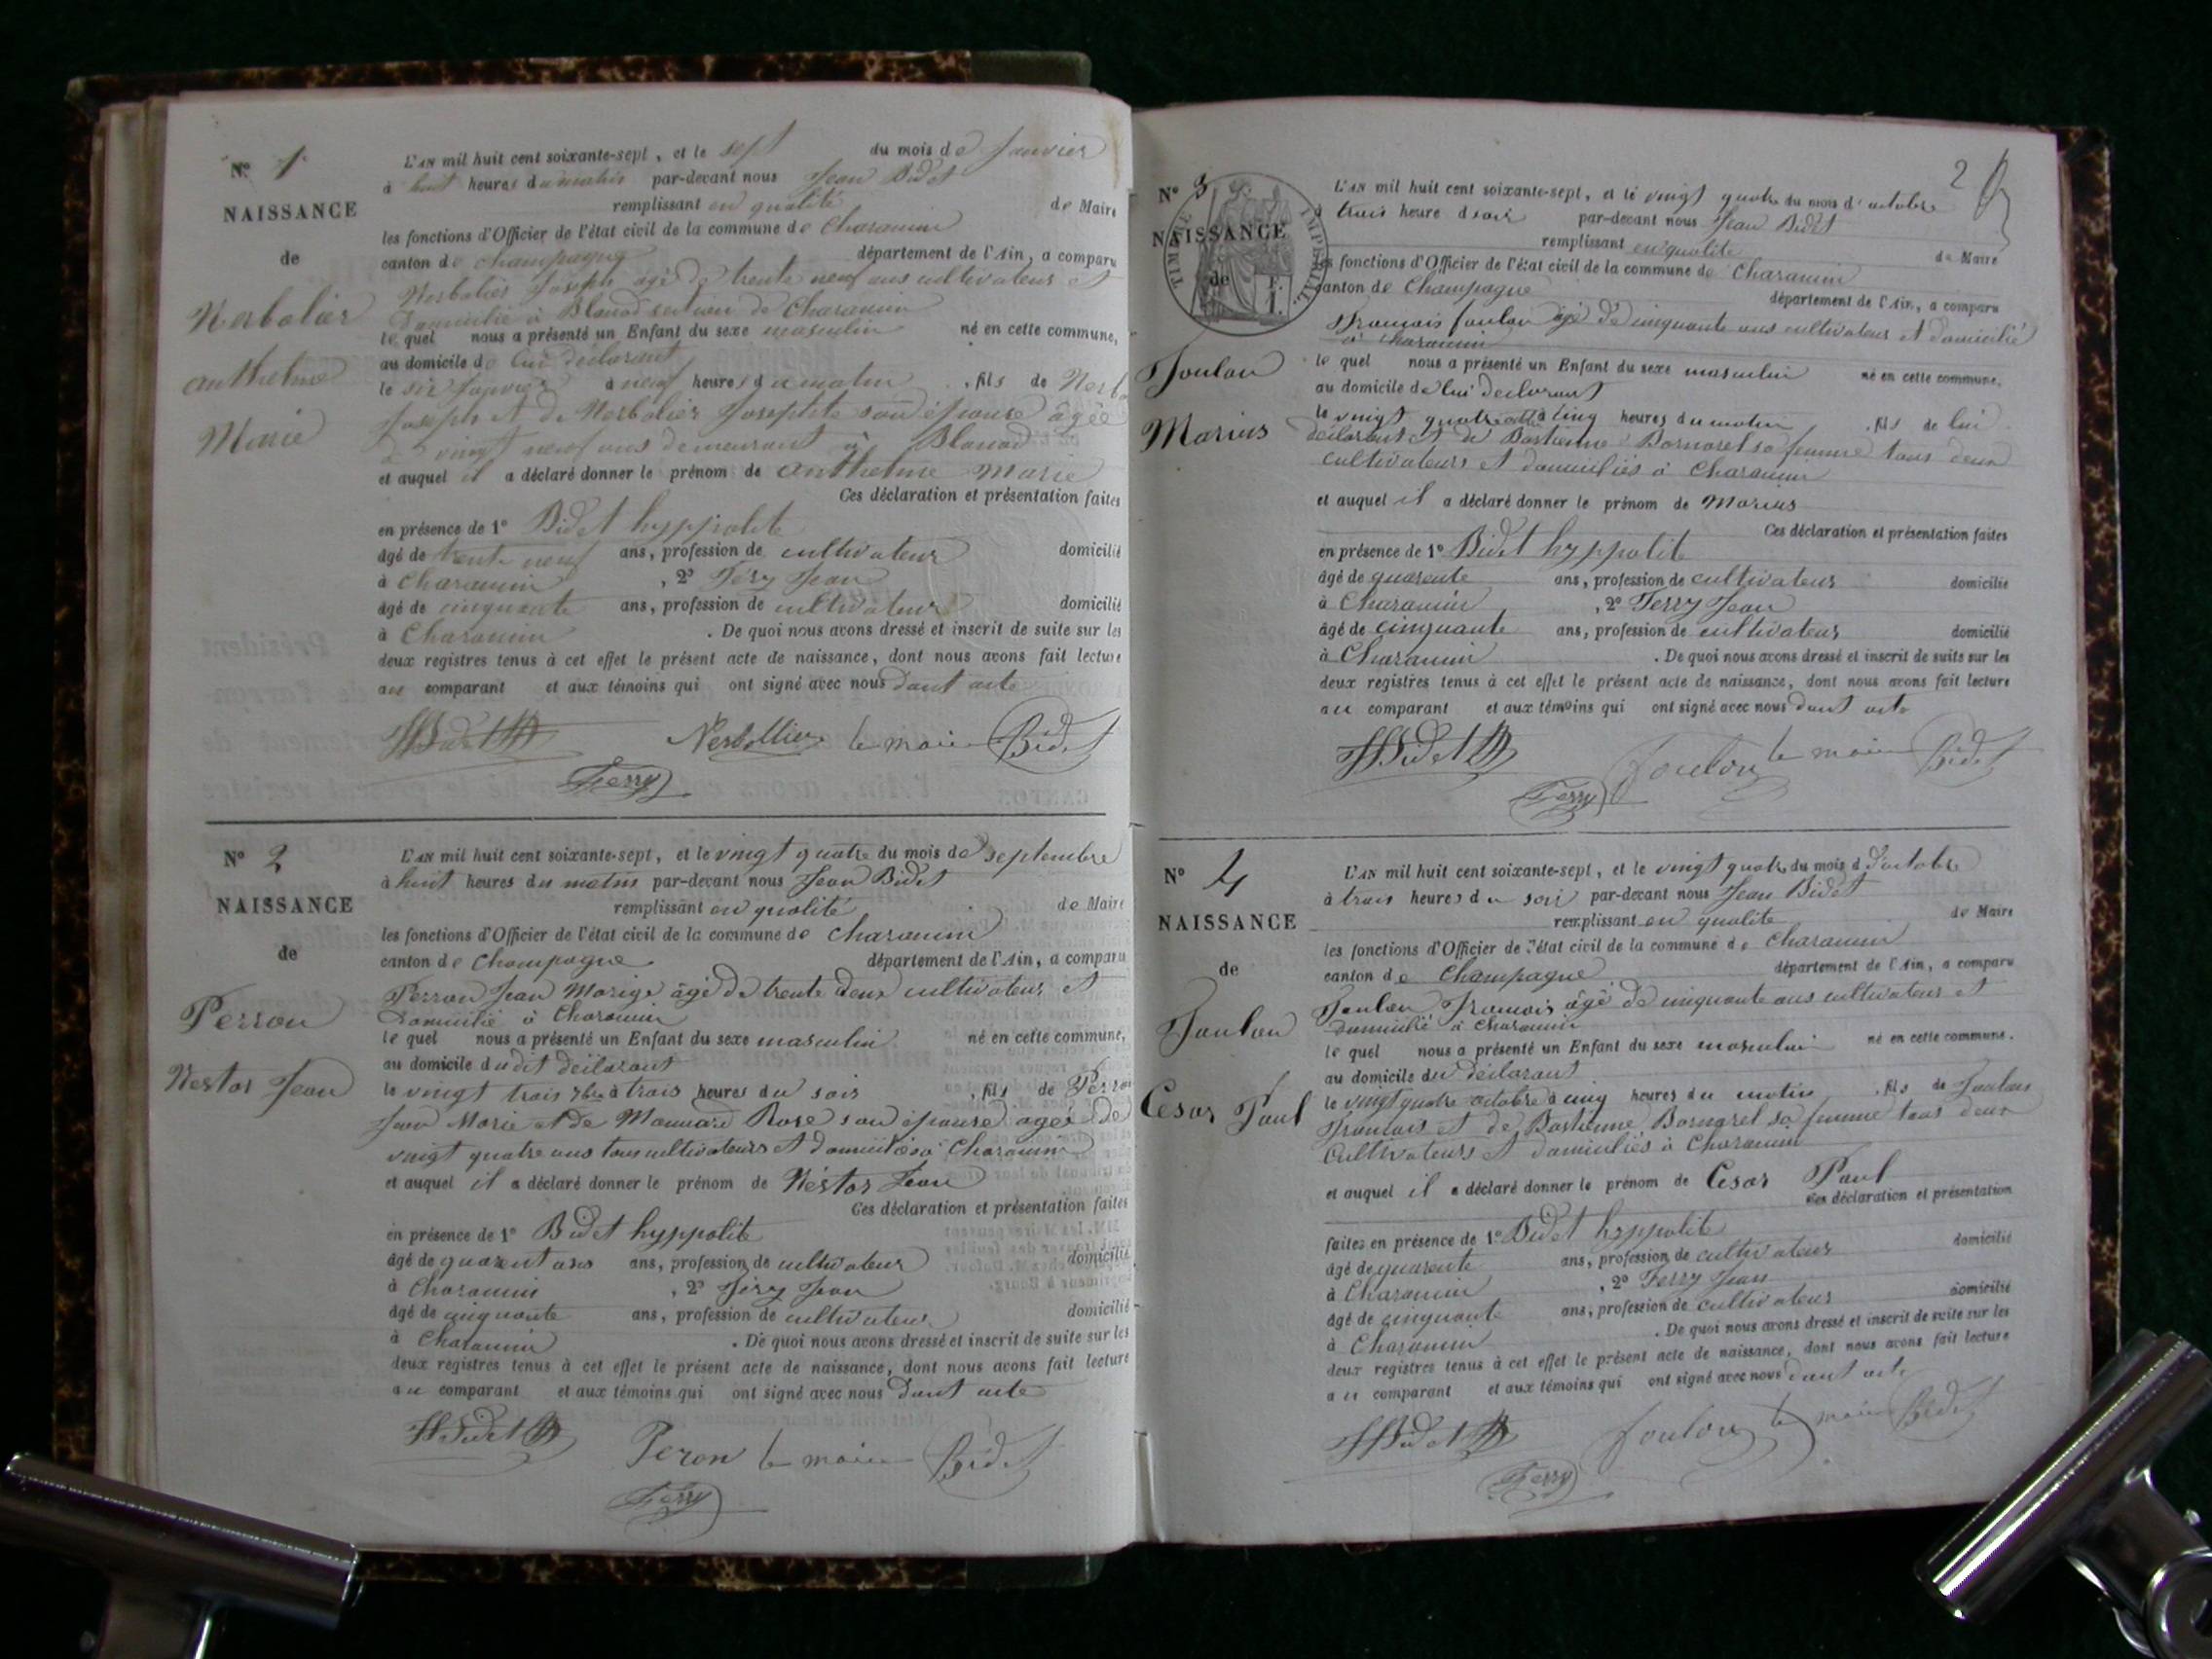 N° 1
NAISSANCE
de
Nerbolier
anthelme
Marie
L'AN mil huit cent soixante-sept, et le sept du mois de Janvier
à huit heures du matin par-devant nous Jean Bidet
remplissant en qualité de Maire
les fonctions d'Officier de l'état civil de la commune de Charancin
canton de Champagne département de l'Ain, a comparu
Nerbolier Joseph agé de trente neuf ans cultivateur et
domicilié à Blanod section de Charancin
le quel nous a présenté un Enfant du sexe masculin né en cette commune,
au domicile de lui déclarant
le six Janvier à neuf heures du matin, fils de Nerbo
Joseph et de Nerbolier Josephte son épouse âgée
de vingt neuf ans demeurant à Blanod
et auquel il a déclaré donner le prénom de anthelme Marie
Ces déclaration et présentation faites
en présence de 1° Bidet hyppolite
âgé de trente neuf ans, profession de cultivateur domicilié
à Charancin, 2° Féry Jean
âgé de cinquante ans, profession de cultivateur domicilié
à Charancin. De quoi nous avons dressé et inscrit de suite sur les
deux registres tenus à cet effet le présent acte de naissance, dont nous avons fait lecture
au comparant et aux témoins qui ont signé avec nous dont acte
HBidet Nerbollier le maire Bidet
Ferry
N° 2
NAISSANCE
de
Perron
Nestor Jean
L'AN mil huit cent soixante-sept, et le vingt quatre du mois de septembre
à huit heures du matin par-devant nous Jean Bidet
remplissant en qualité de Maire
les fonctions d'Officier de l'état civil de la commune de Charancin
canton de Champagne département de l'Ain, a comparu
Perron Jean Marige âgé de trente deux cultivateur et
domicilié à Charancin
le quel nous a présenté un Enfant du sexe masculin né en cette commune,
au domicile dudit déclarant
le vingt trois 7bre à trois heures du soir, fils de Perron
Jean Marie et de Monnard Rose son épouse agée de
vingt quatre ans tous cultivateurs et domiciliés à Charancin
et auquel il a déclaré donner le prénom de Néstor Jean
Ces déclaration et présentation faites
en présence de 1° Bidet hyppolite
âgé de quarent ans ans, profession de cultivateur domicilié
à Charancin, 2° Féry Jean
âgé de cinquante ans, profession de cultivateur domicilié
à Charancin. De quoi nous avons dressé et inscrit de suite sur les
deux registres tenus à cet effet le présent acte de naissance, dont nous avons fait lecture
au comparant et aux témoins qui ont signé avec nous dont acte
HBidet Peron le maire Bidet
Ferry
2
N° 3
TIMBRE IMPERIAL
1 F.
NAISSANCE
de
Foulon
Marius
L'AN mil huit cent soixante-sept, et le vingt quatre du mois d'octobre
à trois heure d soir par-devant nous Jean Bidet
remplissant en qualité de Maire
les fonctions d'Officier de l'état civil de la commune de Charancin
canton de Champagne département de l'Ain, a comparu
François foulon âgé de cinquante ans cultivateur et domicilié
à Charancin
le quel nous a présenté un Enfant du sexe masculin né en cette commune,
au domicile de lui declarant
le vingt quatre octobre à cinq heures du matin, fils de lui
déclarant et de Bastienne Bornarel sa femme tous deux
cultivateurs et domiciliés à Charancin
et auquel il a déclaré donner le prénom de Marius
Ces déclaration et présentation faites
en présence de 1° Bidet hyppolite
âgé de quarente ans, profession de cultivateur domicilié
à Charancin, 2° Ferry Jean
âgé de cinquante ans, profession de cultivateur domicilié
à Charancin. De quoi nous avons dressé et inscrit de suite sur les
deux registres tenus à cet effet le présent acte de naissance, dont nous avons fait lecture
au comparant et aux témoins qui ont signé avec nous dont acte
HBidet foulon le maire Bidet
Ferry
N° 4
NAISSANCE
de
Foulon
Cesar Paul
L'AN mil huit cent soixante-sept, et le vingt quatre du mois d d'octobre
à trois heures du soir par-devant nous Jean Bidet
remplissant en qualite de Maire
les fonctions d'Officier de l'état civil de la commune de Charancin
canton de Champagne département de l'Ain, a comparu
Foulon François âgé de cinquante ans cultivateur et
domicilié à Charancin
le quel nous a présenté un Enfant du sexe masculin né en cette commune.
au domicile du déclarant
le vingt quatre octobre à cinq heures du matin, fils de Foulon
François et de Bastienne Bornarel sa femme tous deux
Cultivateurs et domiciliés à Charancin
et auquel il a déclaré donner le prénom de Cesar Paul
Ces déclaration et présentation
faites en présence de 1° Bidet hyppolite
âgé de quarente ans, profession de cultivateur domicilié
à Charancin, 2° Ferry Jean
âgé de cinquante ans, profession de cultivateur domicilié
à Charancin. De quoi nous avons dressé et inscrit de suite sur les
deux registres tenus à cet effet le présent acte de naissance, dont nous avons fait lecture
au comparant et aux témoins qui ont signé avec nous dont acte
HBidet foulon le maire Bidet
Ferry